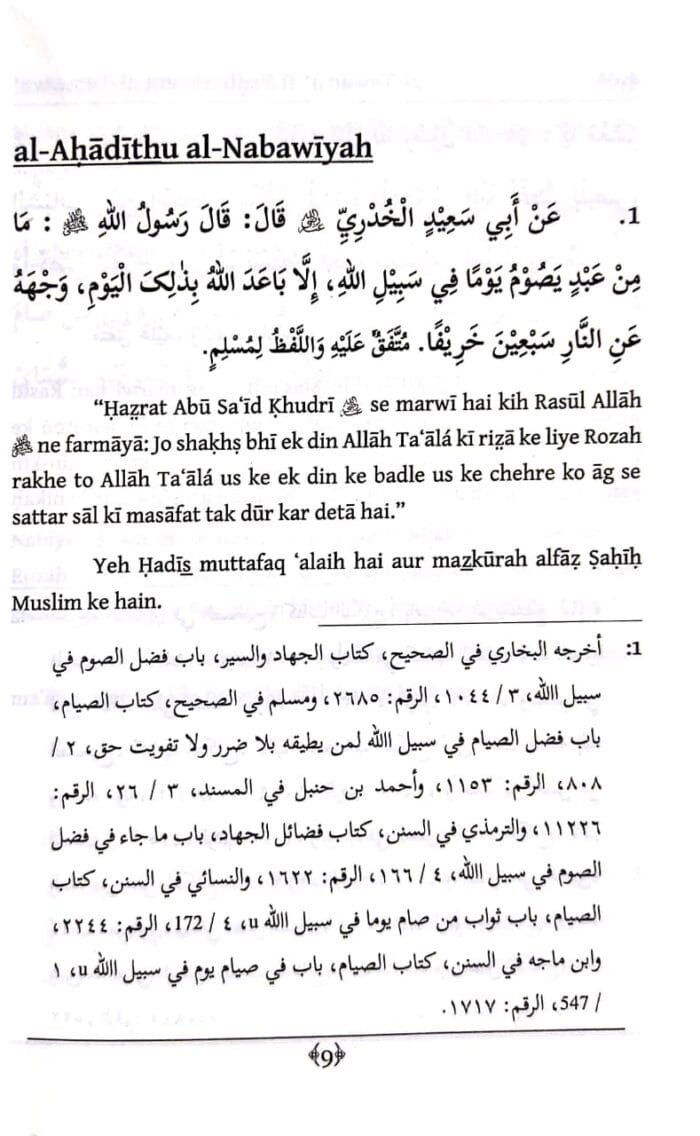 al-Aḥādīthu al-Nabawīyah
1. عَنْ أَبِي سَعِيْدٍ الْخُدْرِيِّ ﷺ قَالَ: قَالَ رَسُولُ اللهِ ﷺ : مَا
مِنْ عَبْدٍ يَصُوْمُ يَوْمًا فِي سَبِيْلِ اللهِ، إِلَّا بَاعَدَ اللهُ بِذٰلِکَ الْيَوْمِ، وَجْهَهُ
عَنِ النَّارِ سَبْعِيْنَ خَرِيْفًا. مُتَّفَقٌ عَلَيْهِ وَاللَّفْظُ لِمُسْلِمٍ.
“Ḥaẓrat Abū Sa‘īd Ḳhudrī se marwī hai kih Rasūl Allāh
ﷺ ne farmāyā: Jo shaḳhṣ bhī ek din Allāh Ta‘ālá kī riẓā ke liye Rozah
rakhe to Allāh Ta‘ālá us ke ek din ke badle us ke chehre ko āg se
sattar sāl kī masāfat tak dūr kar detā hai.”
Yeh Ḥadīs̲ muttafaq ‘alaih hai aur maz̲kūrah alfāẓ Ṣaḥīḥ
Muslim ke hain.
1: أخرجه البخاري في الصحيح، كتاب الجهاد والسير، باب فضل الصوم في
سبيل االله، ٣ / ١٠٤٤، الرقم: ٢٦٨٥، ومسلم في الصحيح، كتاب الصيام،
باب فضل الصيام في سبيل االله لمن يطيقه بلا ضرر ولا تفويت حق، ٢ /
٨٠٨، الرقم: ١١٥٣، وأحمد بن حنبل في المسند، ٣ / ٢٦، الرقم:
١١٢٢٦، والترمذي في السنن، كتاب فضائل الجهاد، باب ما جاء في فضل
الصوم في سبيل االله، ٤ / ١٦٦، الرقم: ١٦٢٢، والنسائي في السنن، كتاب
الصيام، باب ثواب من صام يوما في سبيل االله u، ٤ / 172، الرقم: ٢٢٤٤،
وابن ماجه في السنن، كتاب الصيام، باب في صيام يوم في سبيل االله u، ١
/ 547، الرقم: ١٧١٧.
﴾9﴿